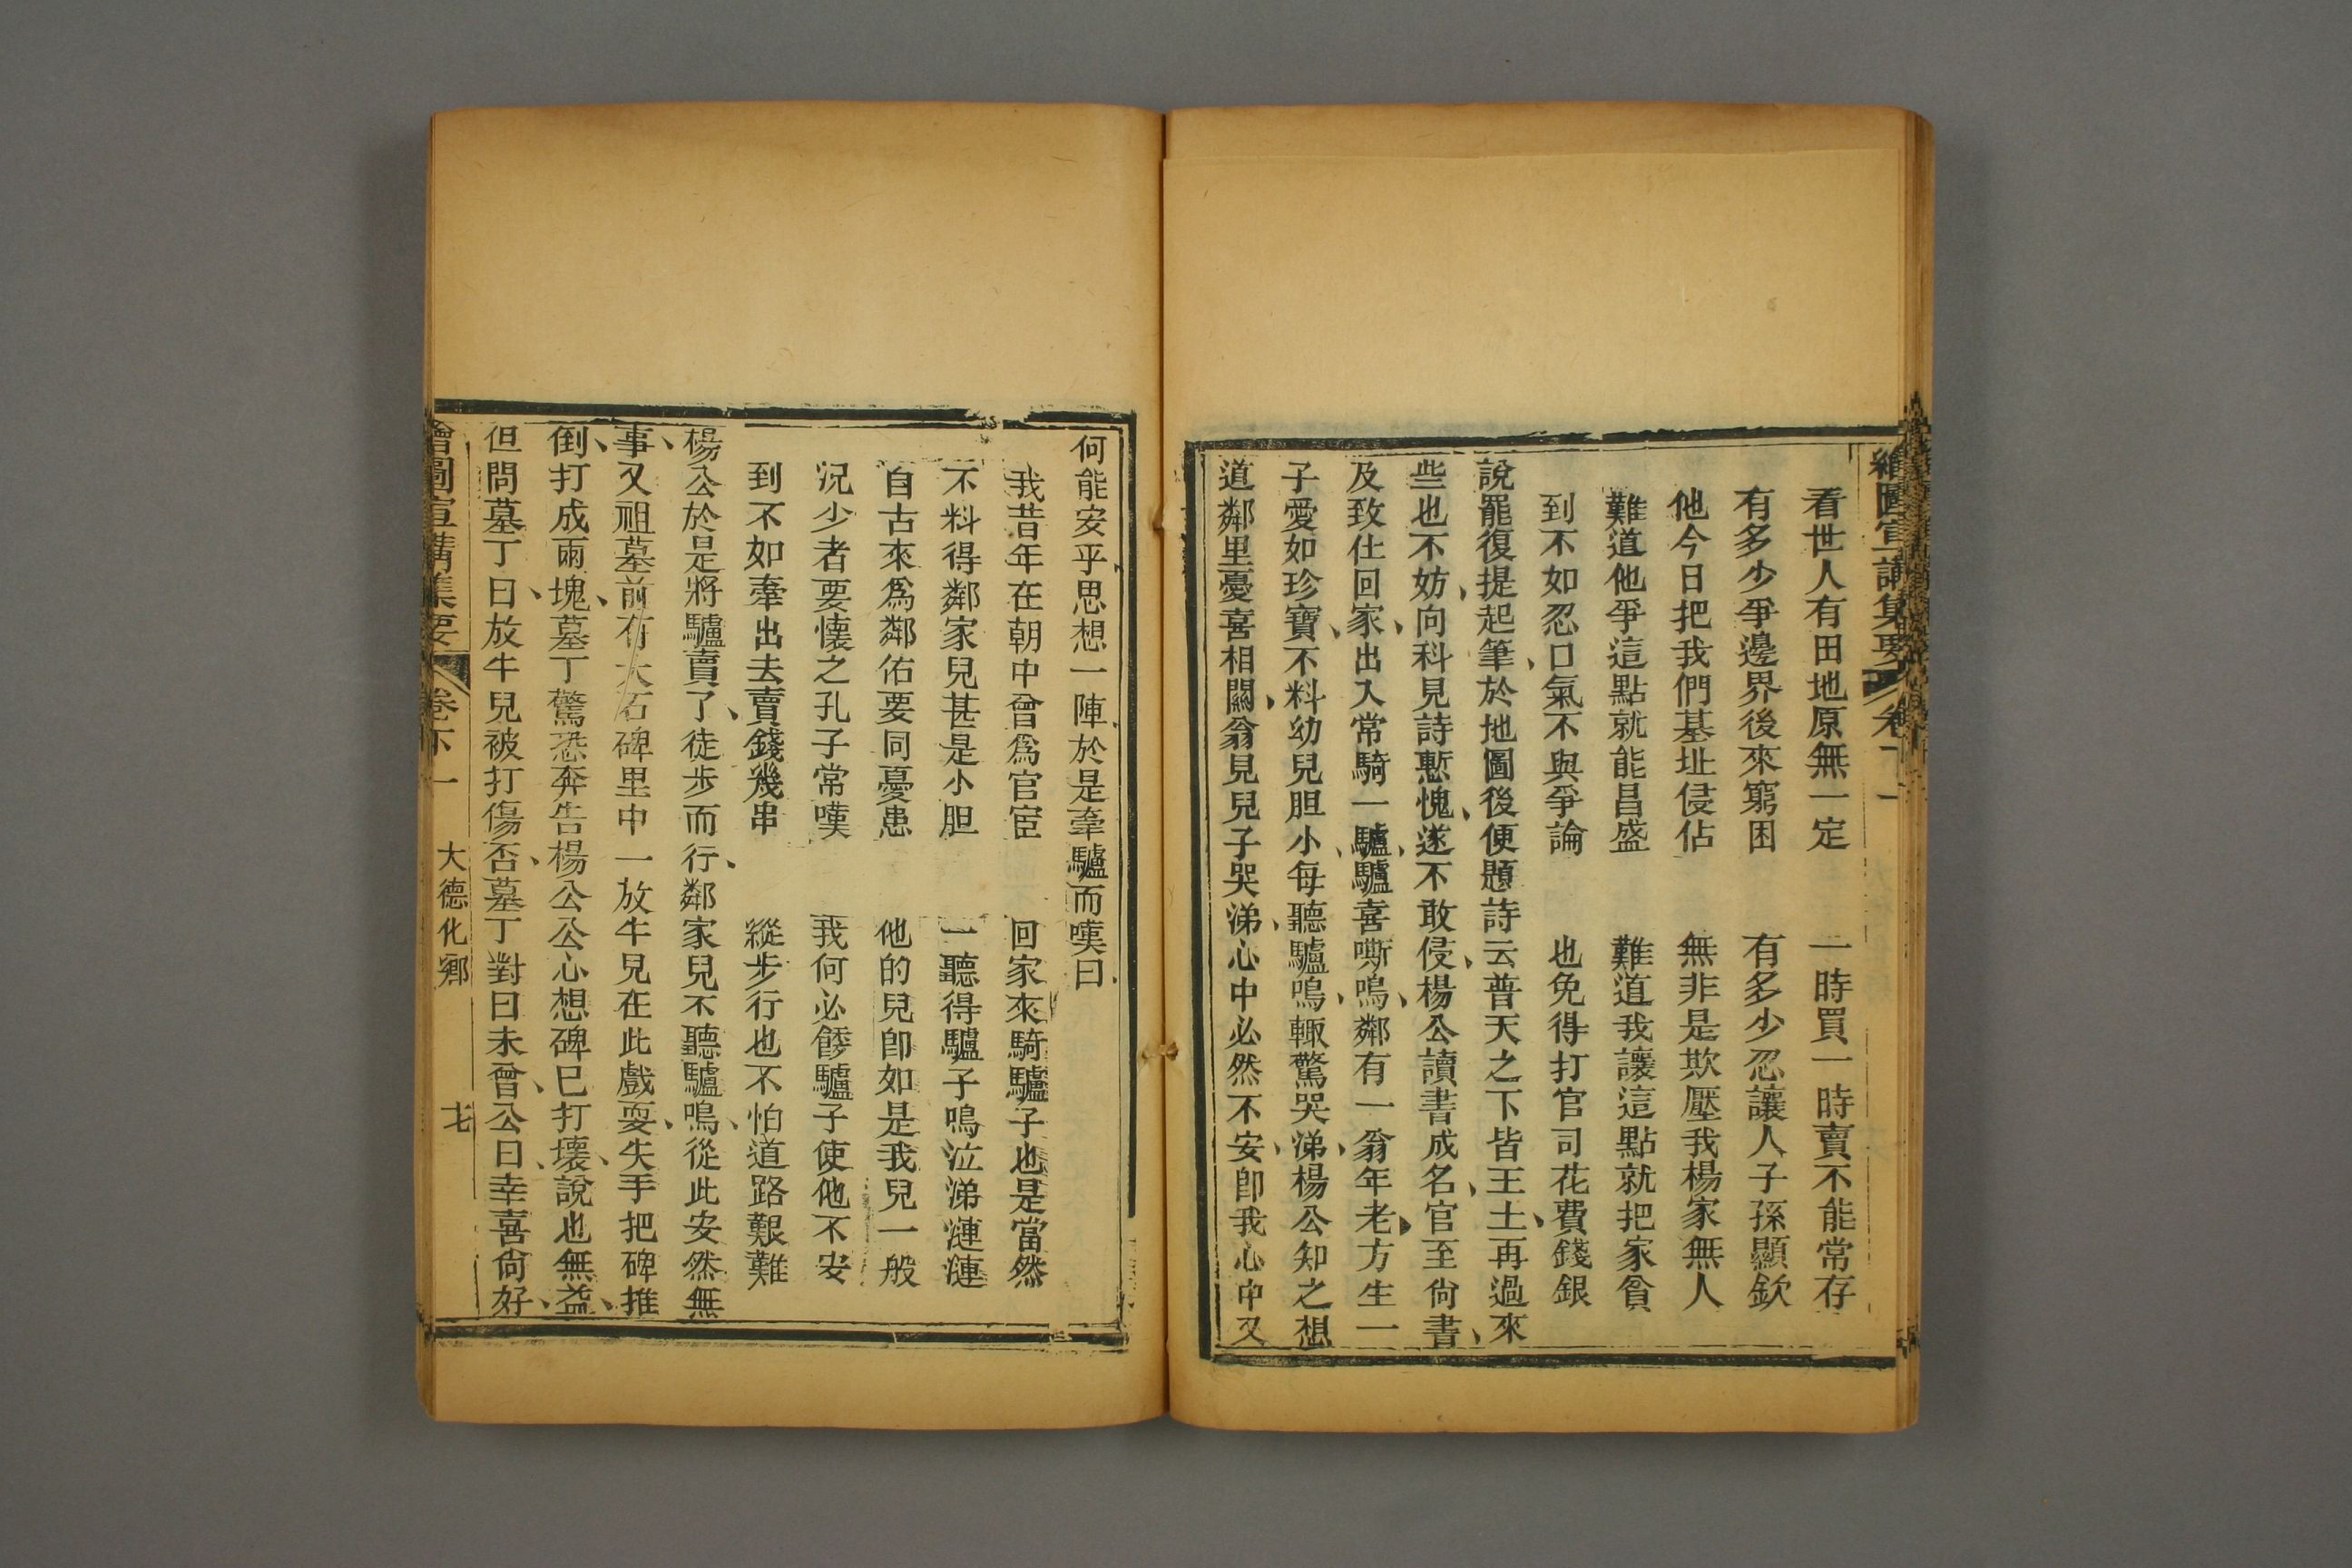 繪圖宣講集要 卷下一
看世人有田地原無一定 一時買一時賣不能常存
有多少爭邊界後來窮困 有多少忍讓人子孫顯欽
他今日把我們基址侵佔 無非是欺壓我楊家無人
難道他爭這點就能昌盛 難道我讓這點就把家貧
到不如忍口氣不與爭論 也免得打官司花費錢銀
說罷復提起筆、於地圖後便題詩云普天之下皆王土、再過來
些也不妨、向科見詩慙愧、遂不敢侵、楊公讀書成名、官至尙書、
及致仕回家、出入常騎一驢、驢喜嘶鳴、鄰有一翁年老、方生一
子愛如珍寶、不料幼兒胆小、每聽驢鳴、輒驚哭涕、楊公知之想
道鄰里憂喜相關、翁見兒子哭涕、心中必然不安、卽我心中又
何能安乎思想一陣、於是牽驢而嘆曰、
我昔年在朝中曾爲官宦 回家來騎驢子也是當然
不料得鄰家兒甚是小胆 一聽得驢子鳴泣涕漣漣
自古來爲鄰佑要同憂患 他的兒卽如是我兒一般
況少者要懷之孔子常嘆 我何必餧驢子使他不安
到不如牽出去賣錢幾串 縱步行也不怕道路艱難
楊公於是將驢賣了、徒步而行、鄰家兒不聽驢鳴、從此安然無
事、又祖墓前有大石碑里中一放牛兒在此戲耍、失手把碑推
倒、打成兩塊、墓丁驚恐奔告楊公公心想碑已打壞、說也無益、
但問墓丁曰、放牛兒被打傷否、墓丁對曰未曾、公曰、幸喜尙好、
繪圖宣講集要 卷下一 大德化鄉 七